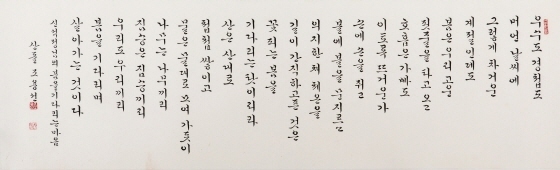 우수도 경칩도
머언 날씨에
그렇게 차거운
계절인데도
봄은 우리 고은
핏줄을 타고 오고
호흡은 가빠도
이토록 뜨거운가
손에 손을 쥐고
볼에 볼을 문지르고
의지한 채 체온을
길이 간직하고픈 것은
꽃피는 봄을
기다리는 탓이리라
산은 산대로
첩첩 쌓이고
물은 물대로 모여 가듯이
나무는 나무끼리
짐승은 짐승끼리
우리도 우리끼리
봄을 기다리며
살아가는 것이다
신석정님의 봄을 기다리는 마음
산들 조